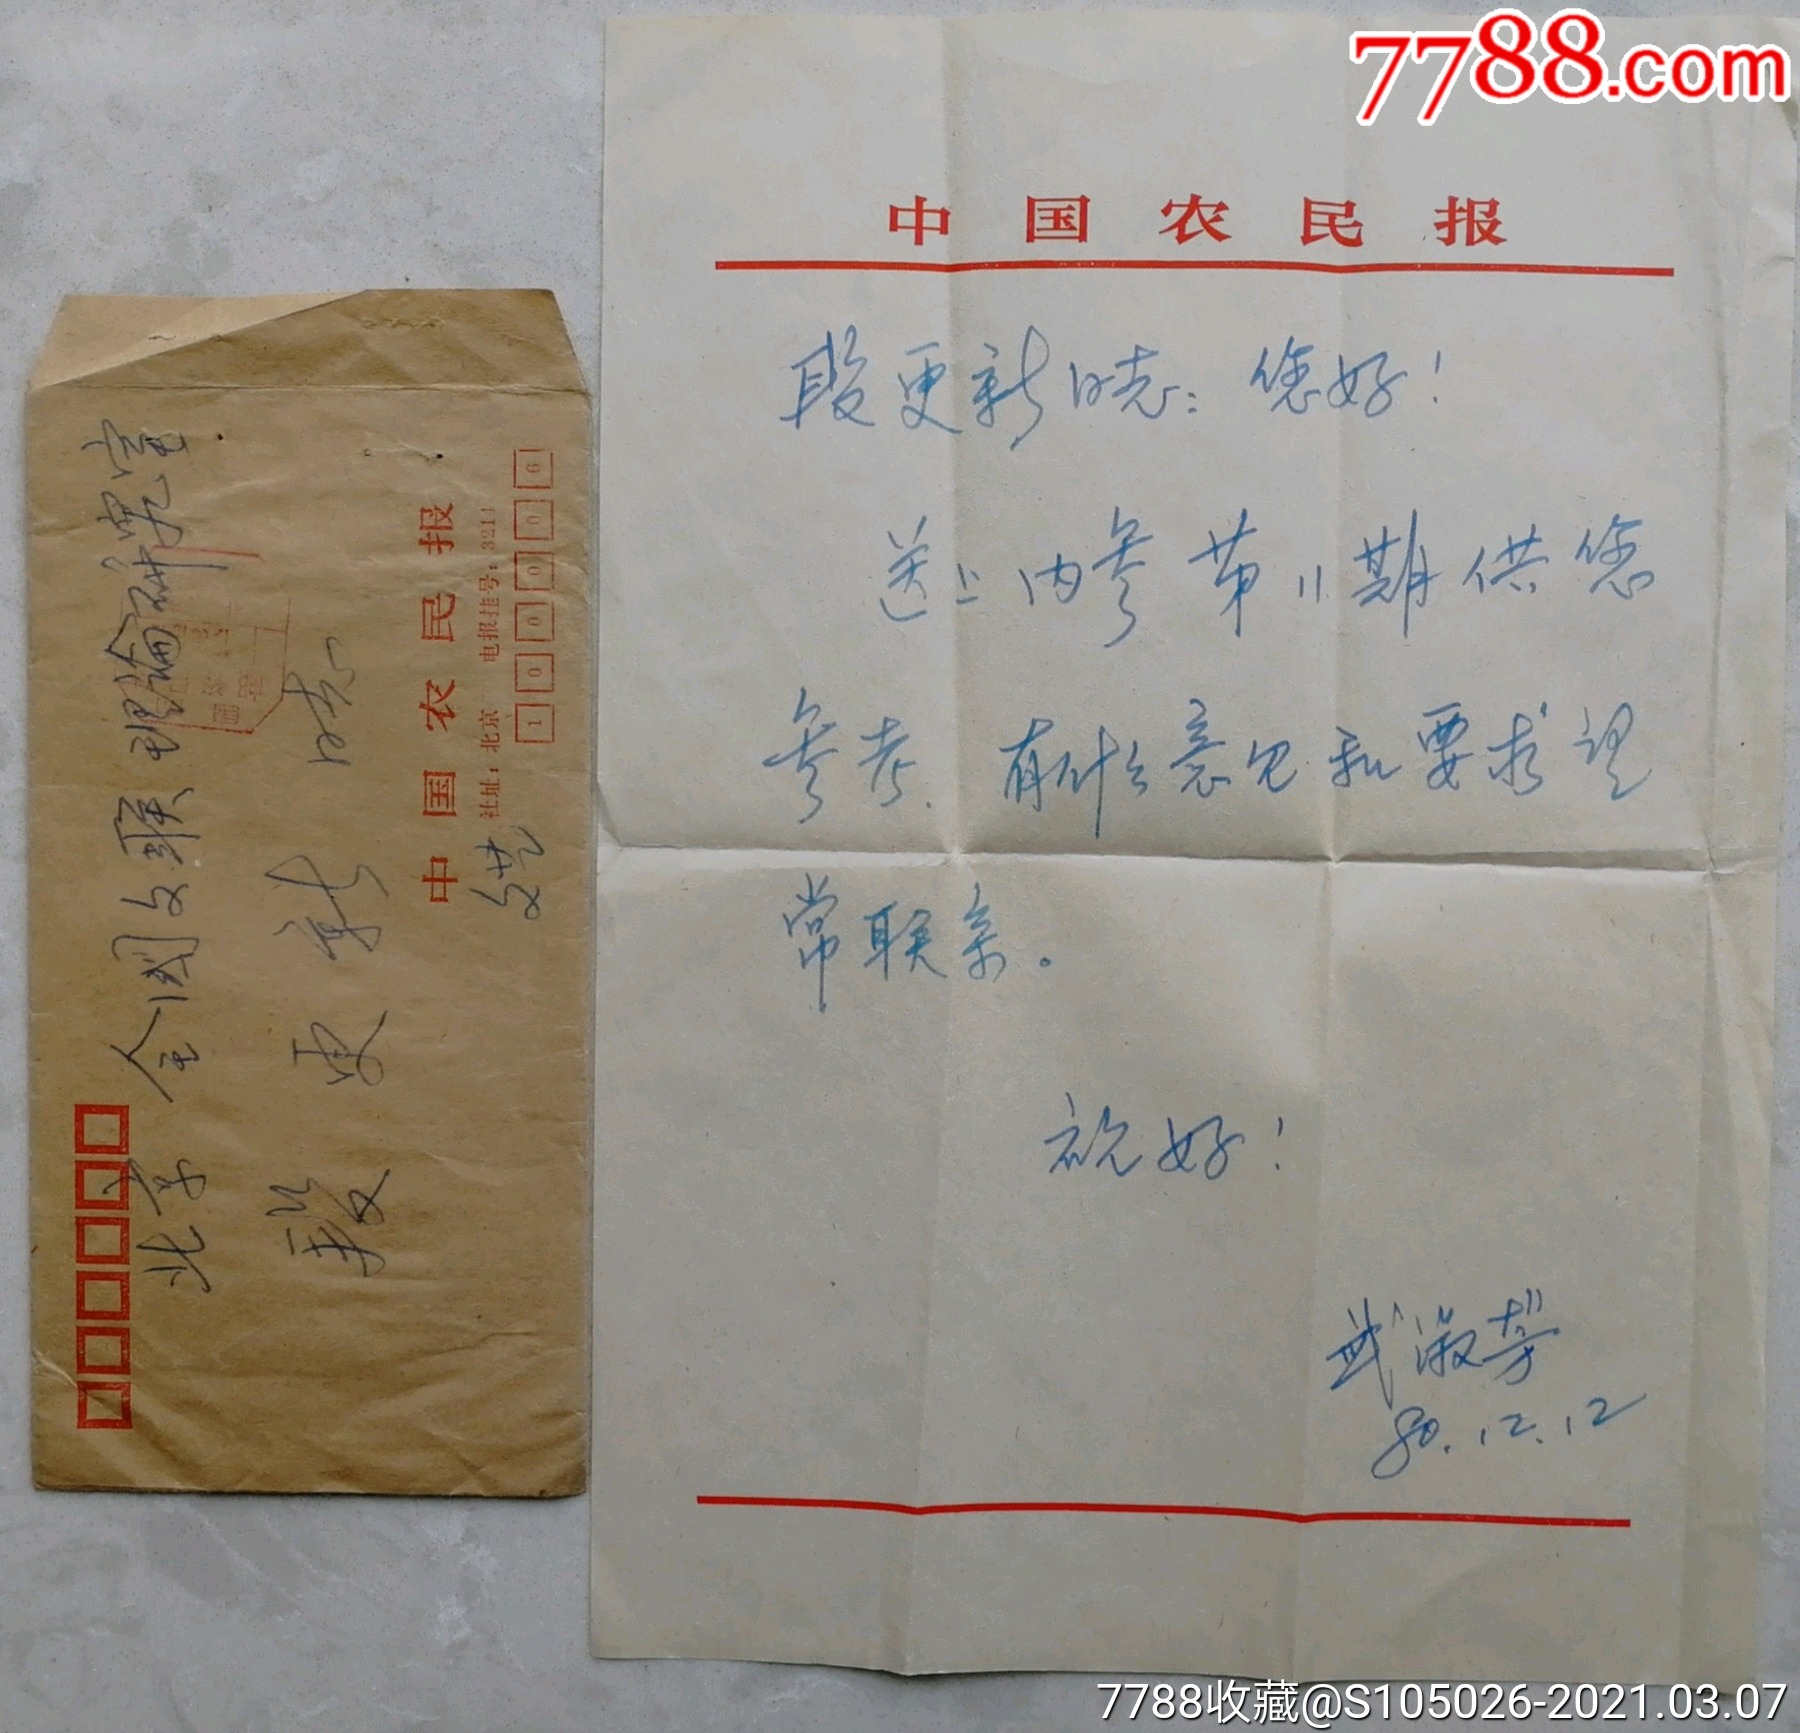 7788.com
中国农民报
段更新同志：您好！
送上内参第11期供您
参考。有什么意见和要求望
常联系。
祝好！
武淑芳
80.12.12
北京 全国文联理论研究室
段更新 同志
中国农民报
社址：北京 电报挂号：3211
100006
文艺
7788收藏@S105026-2021.03.07